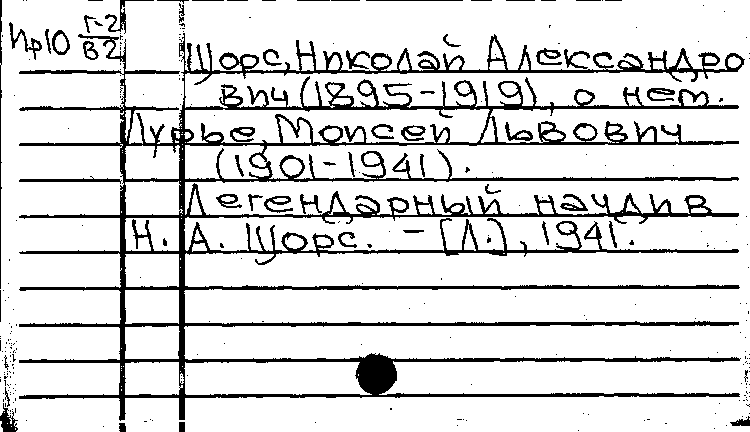 Пр10 Г-2
В2
Щорс, Николай Александро
вич (1895-1919), о нем.
Лурье, Моисей Львович
(1901-1941).
Легендарный начдив
Н. А. Щорс. - [Л.], 1941.